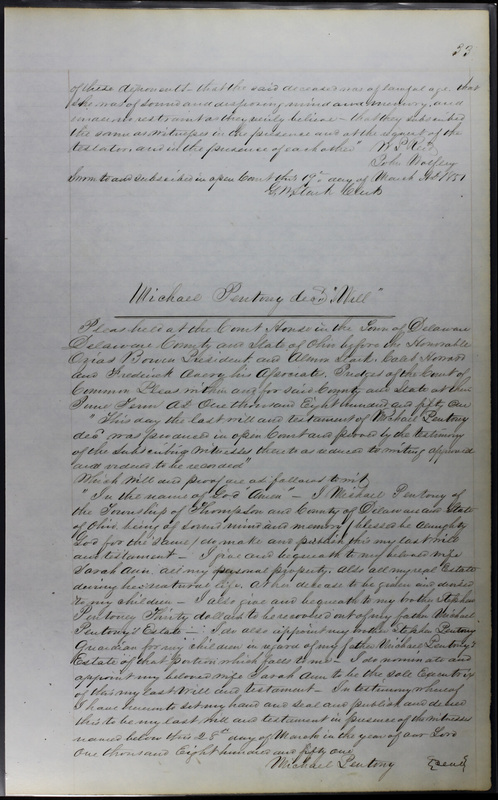 53
of these deponents that the said deceased was of lawful age that
she was of sound and disposing mind and memory, and
under no restraint as they verily believe - that they subscribed
the same as witnesses in the presence and at the request of the
testator and in the presence of each other"
John Wolfley
Sworn to and subscribed in open Court this 19th day of March AD 1851
Stark Clerk
Michael Pentony decd "Will"
Pleas held at the Court House in the Town of Delaware
Delaware County and State of Ohio before the Honorable
Ozias Bowen President and Almon Stark Caleb Howard
and Frederick Avery his Associates, Judges of the Court of
Common Pleas within and for said County and State at their
June Term AD One thousand Eight hundred and fifty One
"This day the last will and testament of Michael Pentony
decd was produced in open Court and proved by the testimony
of the Subscribing witnesses thereto as reduced to writing approved
and ordered to be recorded"
Which Will and proof are as follows to wit
"In the name of God "Amen" - I Michael Pentony of
the Township of Thompson and County of Delaware and State
of Ohio being of sound mind and memory (blessed be almighty
God for the same) do make and publish this my last will
and testament - I give and bequeath to my beloved wife
Sarah Ann all my personal property. Also all my real Estate
during her natural life. At her decease to be given and devised
to my children - I also give and bequeath to my brother Stephen
Pentony Thirty dollars to be received out of my father Michael
Pentony's Estate - I do also appoint my brother Stephen Pentony
Guardian for my children in regard of my father Michael Pentony's
Estate of that portion which falls to me - I do nominate and
appoint my beloved wife Sarah Ann to be the sole Executrix
of this my last Will and testament - In testimony whereof
I have hereunto set my hand and seal and publish and declare
this to be my last will and testament in presence of the witnesses
named below this 28th day of March in the year of our Lord
One thousand Eight hundred and fifty one
Michael Pentony {Seal}